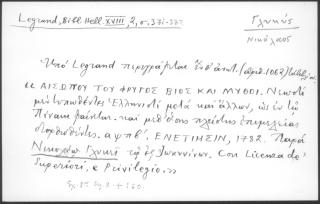 Legrand, Bibl. Hell. XVIII 2, σ. 371-372
Γλυκύς
Νικόλαος
Ὑπὸ Legrand περιγράφεται
"ΑΙΣΩΠΟΥ ΤΟΥ ΦΡΥΓΟΣ ΒΙΟΣ ΚΑΙ ΜΥΘΟΙ. Νεωστὶ
μετατυπωθέντες Ἑλληνιστὶ μετὰ καὶ ἄλλων, ὡς ἐν τῷ
Πίνακι φαίνεται. καὶ μεθ' ὅσης πλείστης ἐπιμελείας
διορθωθέντες. αψπβ'. ΕΝΕΤΙΗΣΙΝ, 1782. Παρὰ
Νικολάῳ Γλυκεῖ τῷ ἐξ Ἰωαννίνων. Con Licenza de'
Superiori, e Privilegio."